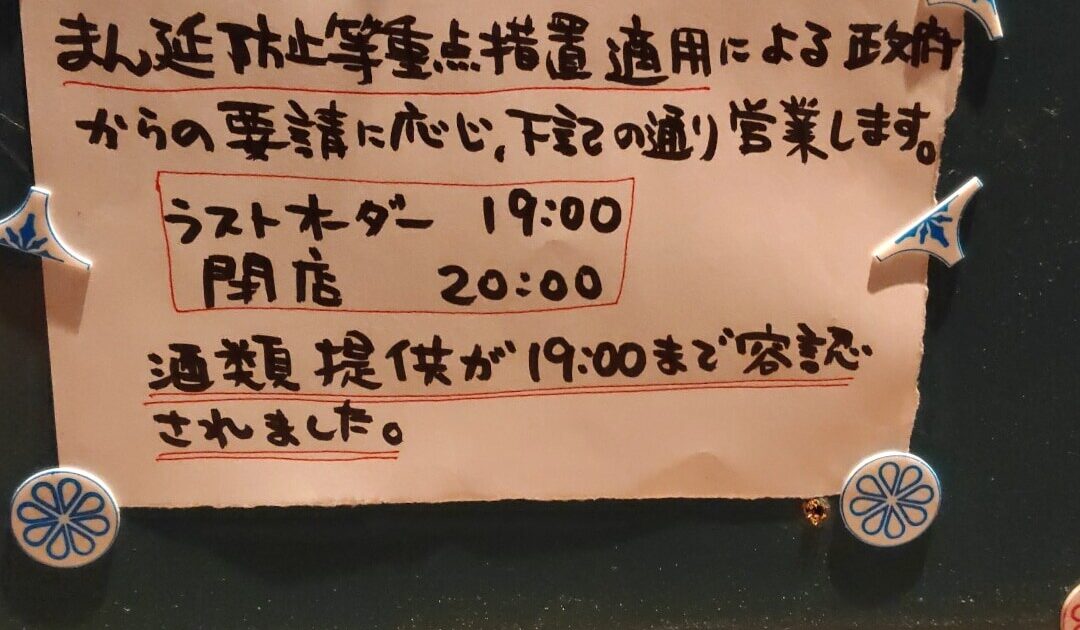 まん延防止等重点措置適用による政府
からの要請に応じ、下記の通り営業します。
ラストオーダー 19:00
閉店 20:00
酒類提供が19:00まで容認
されました。